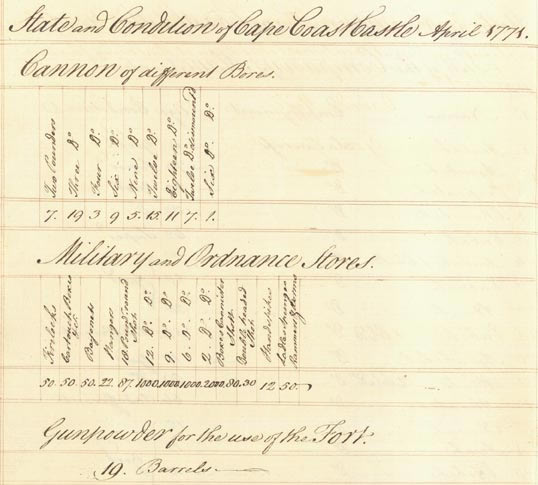 State and Condition of Cape Coast Castle April 1771.
Cannon of different Bores.
Two Pounders
Three Do.
Four Do.
Six Do.
Nine Do.
Twelve Do.
Eighteen Do.
Twelve Do. dismounted
Six Do. Do.
7. 19 3 9 5. 15. 11 7. 1.
Military and Ordnance Stores.
Firelocks
Cartouch Boxes
Bayonets
Hangers
18 Round
Shot
12. Do. Do.
9. Do. Do.
6. Do. Do.
2 Do. Do.
Boxes Cannister
Shott
Double headed
Shot
Handspikes
Ladles Sponges
Rammers & Worms
50. 50. 50. 22. 87. 1000. 1000. 1000. 2000. 80. 30 12 50.
Gunpowder for the use of the Fort.
19. Barrels